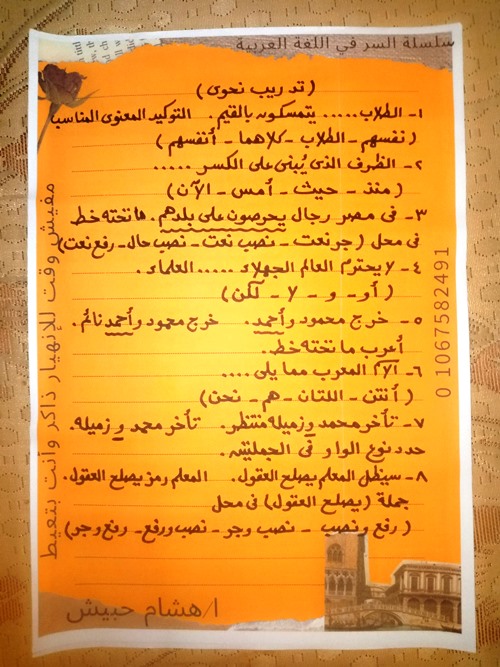 سلسلة السر في اللغة العربية
(تدريب نحوى)
١- الطلاب ..... يتمسكون بالقيم. التوكيد المعنوى المناسب
(نفسهم - الطلاب - كلاهما - أنفسهم)
٢- الظرف الذى يُبنى على الكسر .....
(منذ - حيث - أمس - الآن)
٣- فى مصر رجال يحرصون على بلدهم. ما تحته خط
فى محل (جر نعت - نصب نعت - نصب حال - رفع نعت)
٤- لا يحترم العالم الجهلاء ..... العلماء.
(أو - و - لا - لكن)
٥- خرج محمود وأحمد. خرج محمود وأحمد نائم.
أعرب ما تحته خط.
٦- الاسم المعرب مما يلى ....
(أنتن - اللتان - هم - نحن)
٧- تأخر محمد وزميله منتظر. تأخر محمد وزميله.
حدد نوع الواو فى الجملتين.
٨- سيظل المعلم يصلح العقول. المعلم رمز يصلح العقول.
جملة (يصلح العقول) فى محل
(رفع ونصب - نصب وجر - نصب ورفع - رفع وجر)
ا/هشام حبيش
مفيش وقت للإنهيار ذاكر وأنت بتعيط
0 1067582491